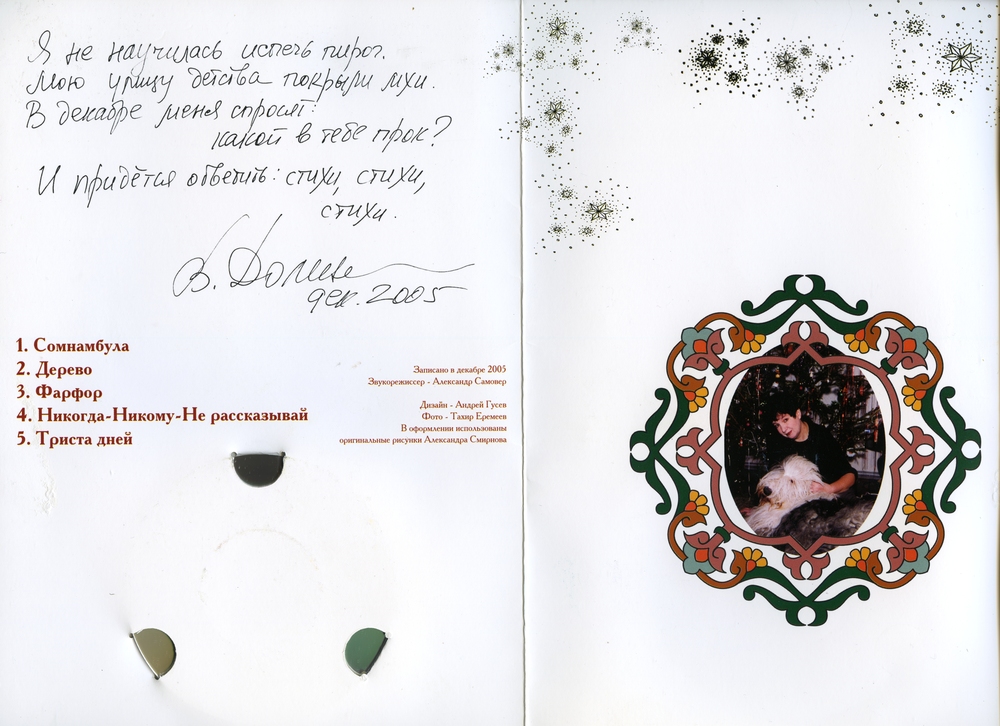 Я не научилась испечь пирог.
Мою улицу детства покрыли мхи.
В декабре меня спросят:
какой в тебе прок?
И придётся ответить: стихи, стихи,
стихи.
В. Долина
дек. 2005
1. Сомнамбула
2. Дерево
3. Фарфор
4. Никогда-Никому-Не рассказывай
5. Триста дней
Записано в декабре 2005
Звукорежиссер - Александр Самовер
Дизайн - Андрей Гусев
Фото - Тахир Еремеев
В оформлении использованы
оригинальные рисунки Александра Смирнова